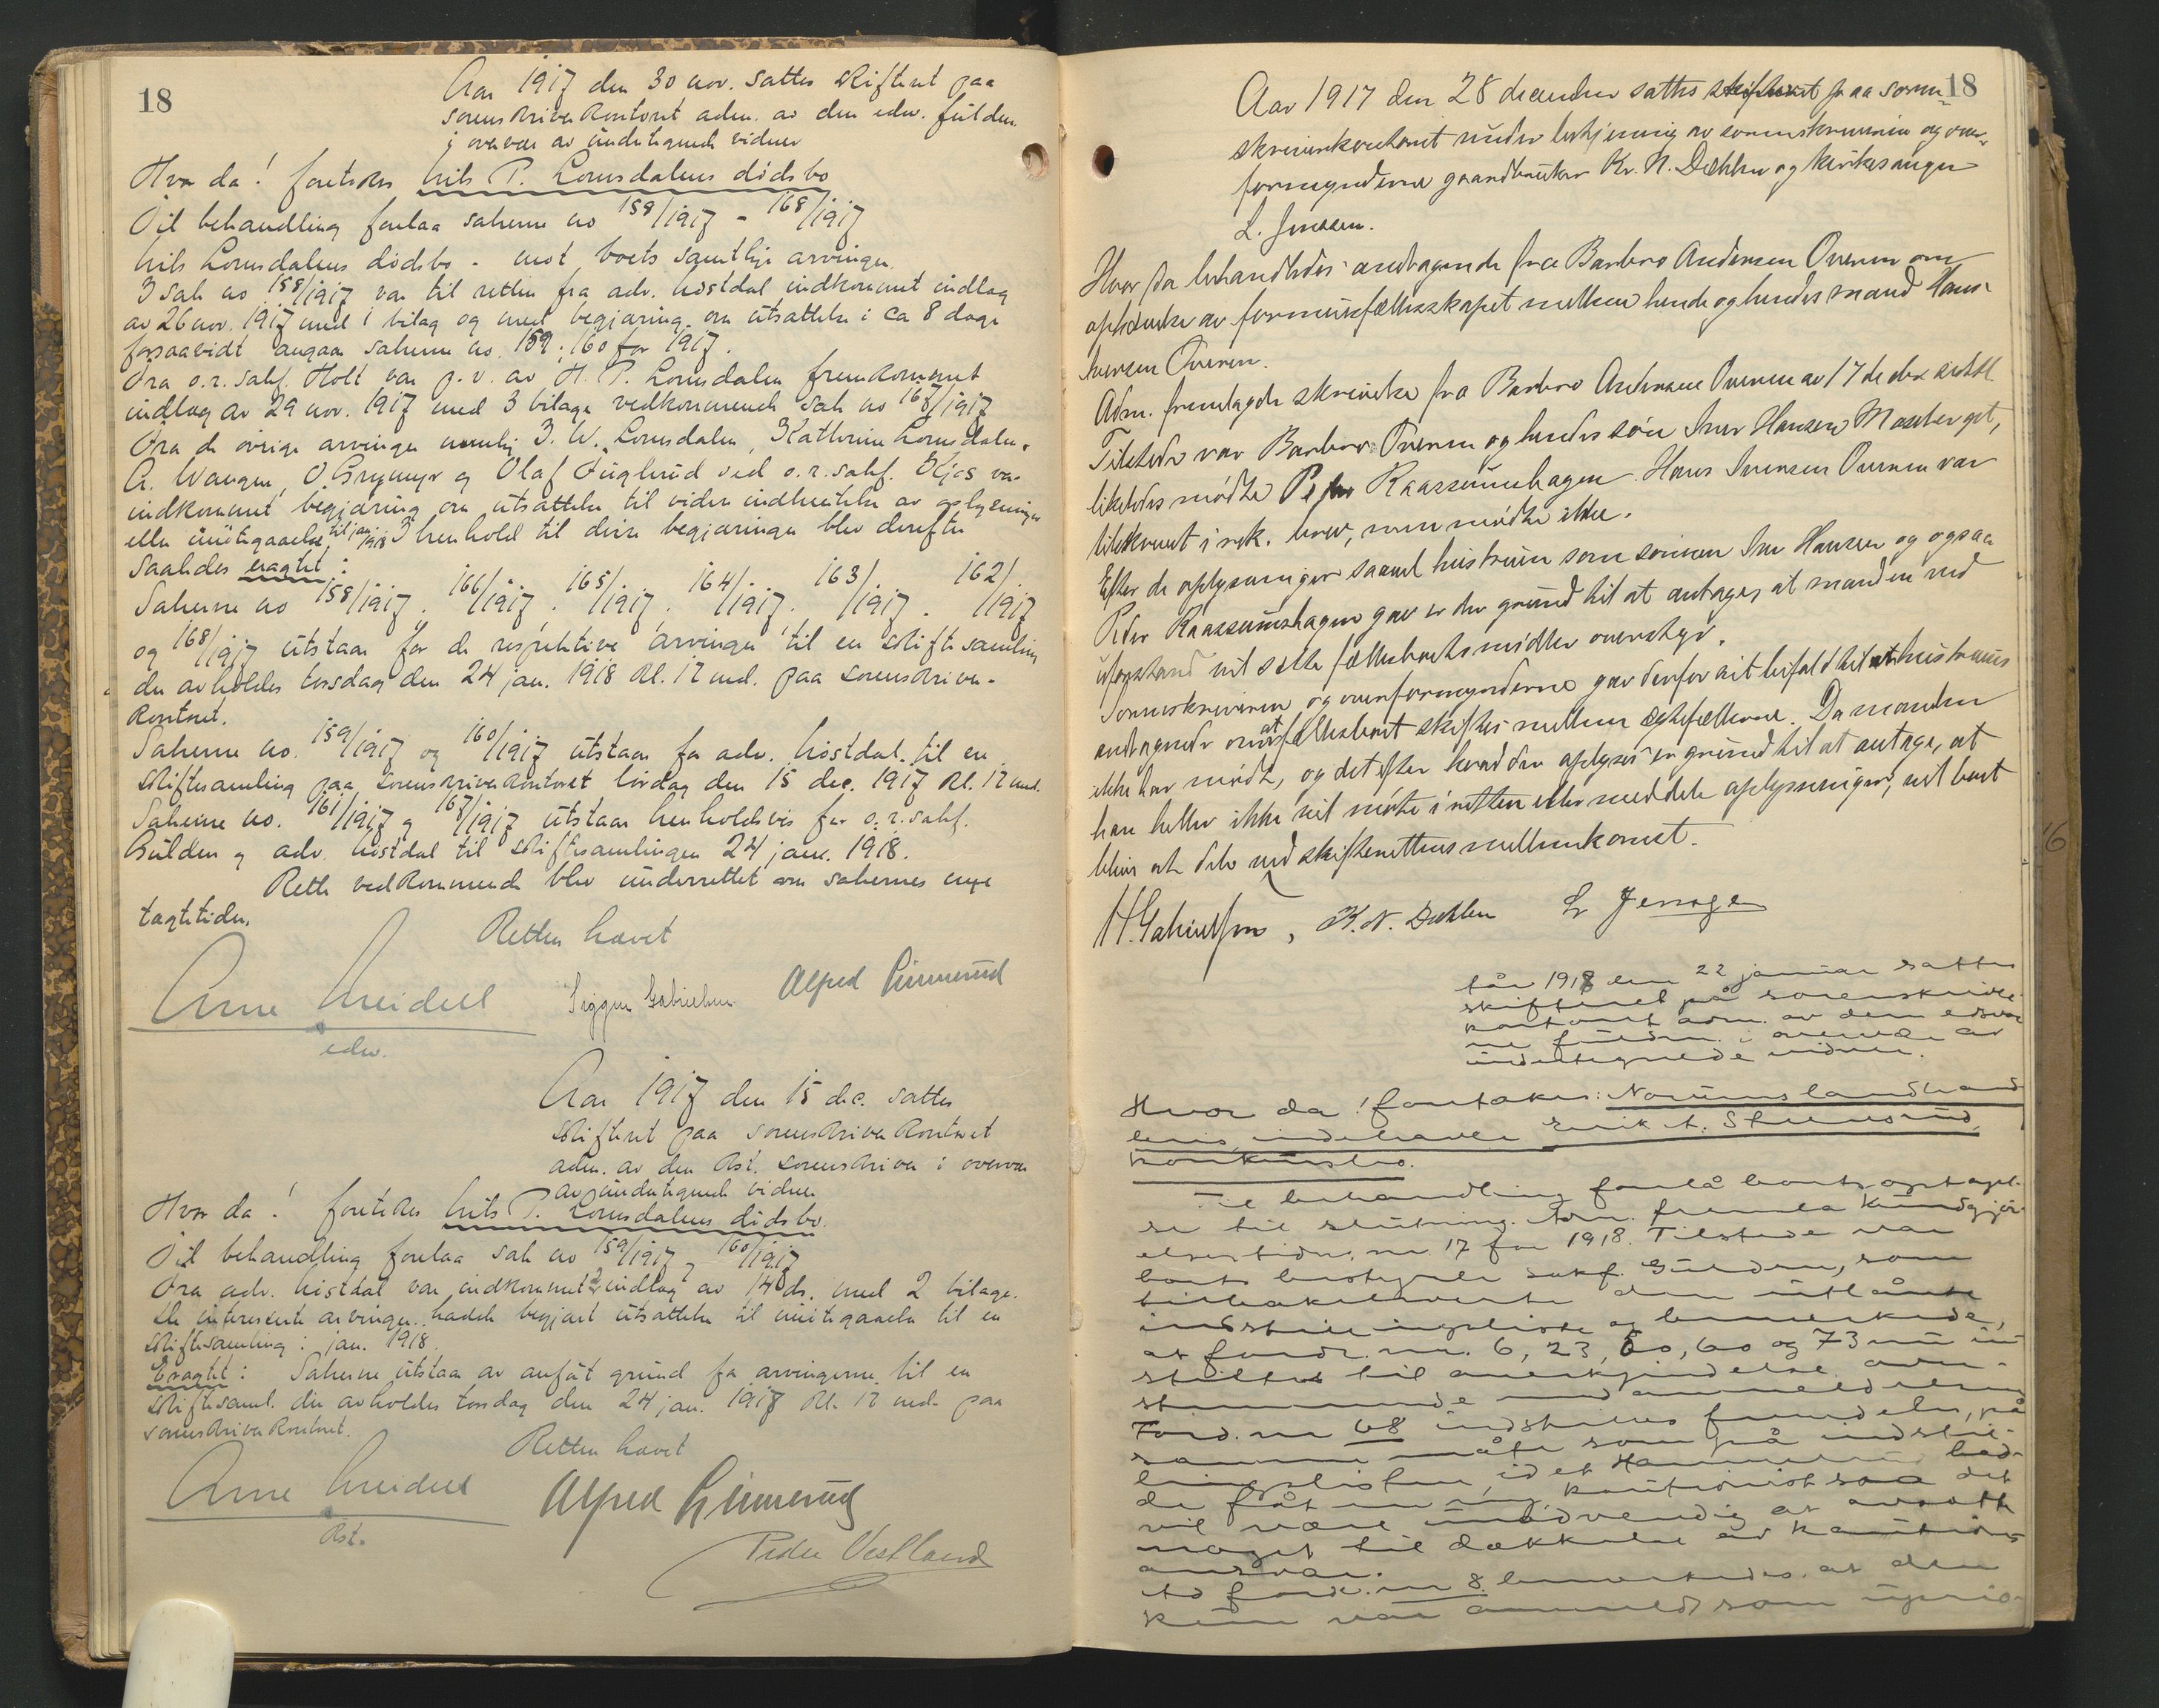 18
Aar 1917 den 30 nov. sattes skifteret paa
sorenskriverkontoret adm. av den edsv. fuldm.
i overvær av undertegnede vidner
Hvor da! foretokes Nils P. Lomsdalens dødsbo
Til behandling forelaa sakerne no 158/1917 - 168/1917
Nils Lomsdalens dødsbo - mot boets samtlige arvinger.
I sak no 158/1917 var til retten fra adv. indkommet indlæg
av 26 nov. 1917 med 1 bilag og med begjæring om utsættelse i ca 8 dage
forsaavidt angaar sakerne no. 159, 160 for 1917.
Fra o.r.sakf. Holt var p.v. av H. P. Lomsdalen fremkommet
indlæg av 29 nov. 1917 med 3 bilage vedkommende sak no 168/1917
Fra de øvrige arvinger nemlig J. W. Lomsdalen, Kathrine Lomsdalen,
A. Waagen, O. Grymyr og Olaf Fuglerud ved o.r.sakf. Kjos var
indkommet begjæring om utsættelse til videre indhentelse av oplysninger
eller imøtegaaelse til jan 1918 I henhold til disse begjæringer blev derefter
saaledes eragtet:
Sakerne no 158/1917, 166/1917, 165/1917, 164/1917, 163/1917, 162/1917
og 168/1917 utstaar for de respektive arvinger til en skiftesamling
der avholdes torsdag den 24 jan. 1918 kl. 12 md. paa sorenskriver-
kontoret.
Sakerne no. 159/1917 og 160/1917 utstaar for adv. til en
skiftesamling paa sorenskriverkontoret lørdag den 15 dec. 1917 kl. 12 md.
Sakerne no. 161/1917 og 167/1917 utstaar henholdsvis for o.r.sakf.
Gulden og adv. til skiftesamlingen 24 jan. 1918.
Rette vedkommende blev underrettet om sakernes nye
tægtetider.
Retten hævet
Arne Meidell
edsv.
Siggen Gabrielsen
Alfred Linnerud
Aar 1917 den 15 dec. sattes
skifteret paa sorenskriverkontoret
adm. av den kst. sorenskriver i overvær
av undertegnede vidner
Hvor da! foretokes Nils P. Lomsdalens dødsbo.
Til behandling forelaa sak no 159/1917 og 160/1917
Fra adv. var indkommet 2 indlæg av 14 ds. med 2 bilage.
De interesserte arvinger hadde begjært utsættelse til imøtegaaelse til en
skiftesamling i jan. 1918.
Eragtet: Sakerne utstaar av anført grund for arvingerne til en
skiftesaml. der avholdes torsdag den 24 jan. 1918 kl. 12 md. paa
sorenskriverkontoret.
Retten hævet
Arne Meidell
kst.
Alfred Linnerud
Peder Vestland
18
Aar 1917 den 28 december sattes skifteret paa soren-
skriverkontoret under bestyrning av sorenskriveren og over-
formynderne gaardbruker Kr. N. Dæhlen og kirkesanger
L. Jensen.
Hvor da behandledes andragende fra Barbro Andersen Overen om
ophævelse av formuesfællesskapet mellem hende og hendes mand Hans
Iversen Overen.
Adm. fremlagde skrivelse fra Barbro Andersen Overen av 17 de ds
Tilstede var Barbro Overen og hendes søn Iver Hansen Moseberget,
likeledes mødte Peder Raassumshagen. Hans Iversen Overen var
tilskrevet i rek. brev, men mødte ikke.
Efter de oplysninger saavel hustruen som sønnen Iver Hansen og ogsaa
Peder Raassumshagen gav er der grund til at antages at manden ved
uforstand vil sætte fællesboets midler overstyr.
Sorenskriveren og overformynderne gav derfor sit bifald til at hustruens
andragende om at fællesboet skiftes mellem egtefællerne. Da manden
ikke har mødt, og det efter hvad der oplyses er grund til at antage, at
han heller ikke vil møte i retten eller meddele oplysninger, vil boet
bliver at dele ved skifterettens mellemkomst.
H. Gabrielsen, K. N. Dæhlen L Jensen
År 1918 den 22 januar sattes
skifteret på sorenskriver-
kontoret adm. av den edsvor-
ne fuldm. i overvær av
undertegnede vidner.
Hvor da! foretokes: Norums landhand-
leri, indehaver Erik A. Steensrud,
konkursbo.
Til behandling forelå boets optagel-
se til slutning. Adm. fremla kundgjør-
elsestidende nr. 17 for 1918. Tilstede var
boets bestyrer sakf. Gulden, som
tilbakeleverte den utlånte
indstillingsliste og bemerkede,
at fordr. nr. 6, 23, 60 og 73 nu ind-
stilles til anerkjendelse overens-
stemmende med anmeldelsen
Ford. nr 68 indstilles fremdeles på
samme måte som på indstil-
lingslisten, idet had-
de fåt en ny kautionist saa det
vil være unødvendig at avsætte
noget til dækkelse av kautions-
ansvar.
Ad fordr. nr 8. bemerkedes at den
kun var anmeldt som uprio-